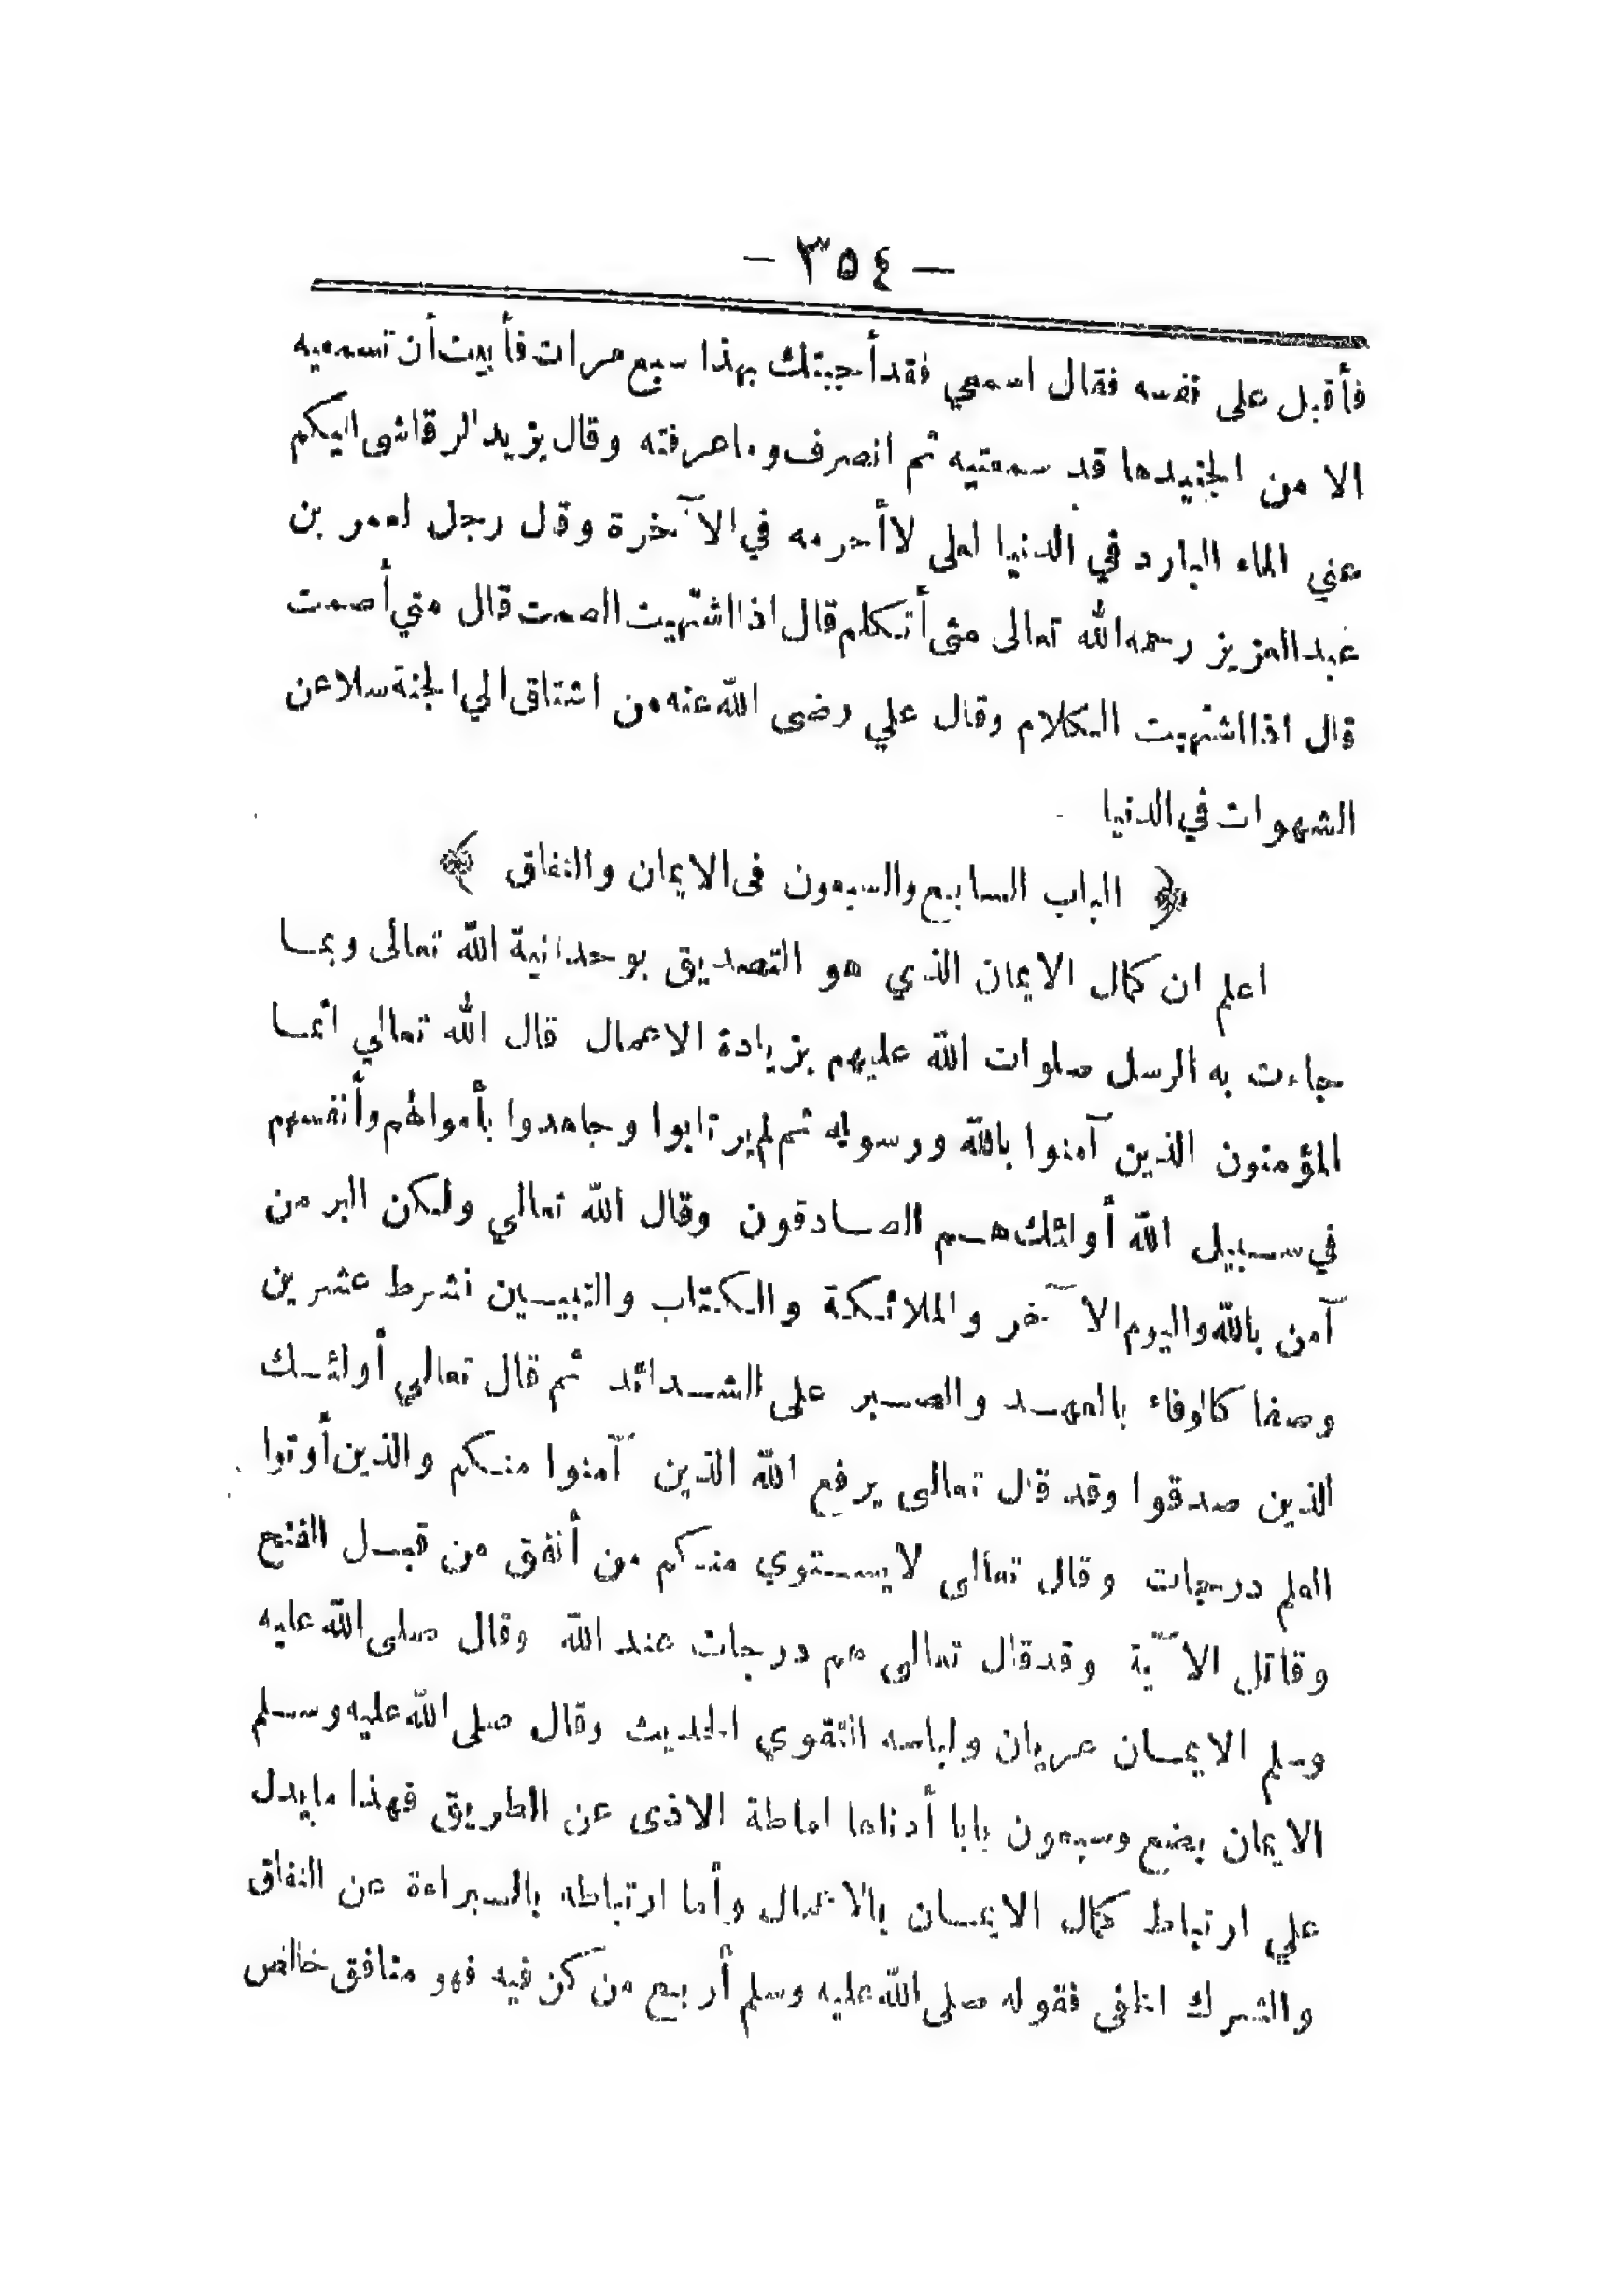 — ٣٥٤ —
فأقبل على نفسه فقال اسمعي فقد أجبتك بهذا سبع مرات فأبيت أن تسمعيه
الا من الجنيدها قد سمعتيه ثم انصرف وما عرفته وقال يزيد الرقاشى اليكم
عني الماء البارد في الدنيا لعلى لا أحرمه في الآخرة وقال رجل لعمر بن
عبد العزيز رحمه الله تعالى متى أتكلم قال اذا اشتهيت الصمت قال متي أصمت
قال اذا اشتهيت الكلام وقال علي رضى الله عنه من اشتاق الي الجنة سلا عن
الشهوات في الدنيا
﴿ الباب السابع والسبعون فى الايمان والنفاق ﴾
اعلم ان كمال الايمان الذي هو التصديق بوحدانية الله تعالى وبما
جاءت به الرسل صلوات الله عليهم بزيادة الاعمال قال الله تعالي انما
المؤمنون الذين آمنوا بالله ورسوله ثم لم يرتابوا وجاهدوا بأموالهم وأنفسهم
في سبيل الله أولئك هم الصادقون وقال الله تعالي ولكن البر من
آمن بالله واليوم الآخر والملائكة والكتاب والنبيين نشرط عشرين
وصفا كالوفاء بالعهد والصبر على الشدائد ثم قال تعالي أولئك
الذين صدقوا وقد قال تعالى يرفع الله الذين آمنوا منكم والذين أوتوا
العلم درجات وقال تعالى لا يستوي منكم من أنفق من قبل الفتح
وقاتل الآية وقد قال تعالى هم درجات عند الله وقال صلى الله عليه
وسلم الايمان عريان ولباسه التقوي الحديث وقال صلى الله عليه وسلم
الايمان بضع وسبعون بابا أدناها اماطة الاذى عن الطريق فهذا ما يدل
علي ارتباط كمال الايمان بالاعمال وأما ارتباطه بالبراءة عن النفاق
والشرك الخفى فقوله صلى الله عليه وسلم أربع من كن فيه فهو منافق خالص